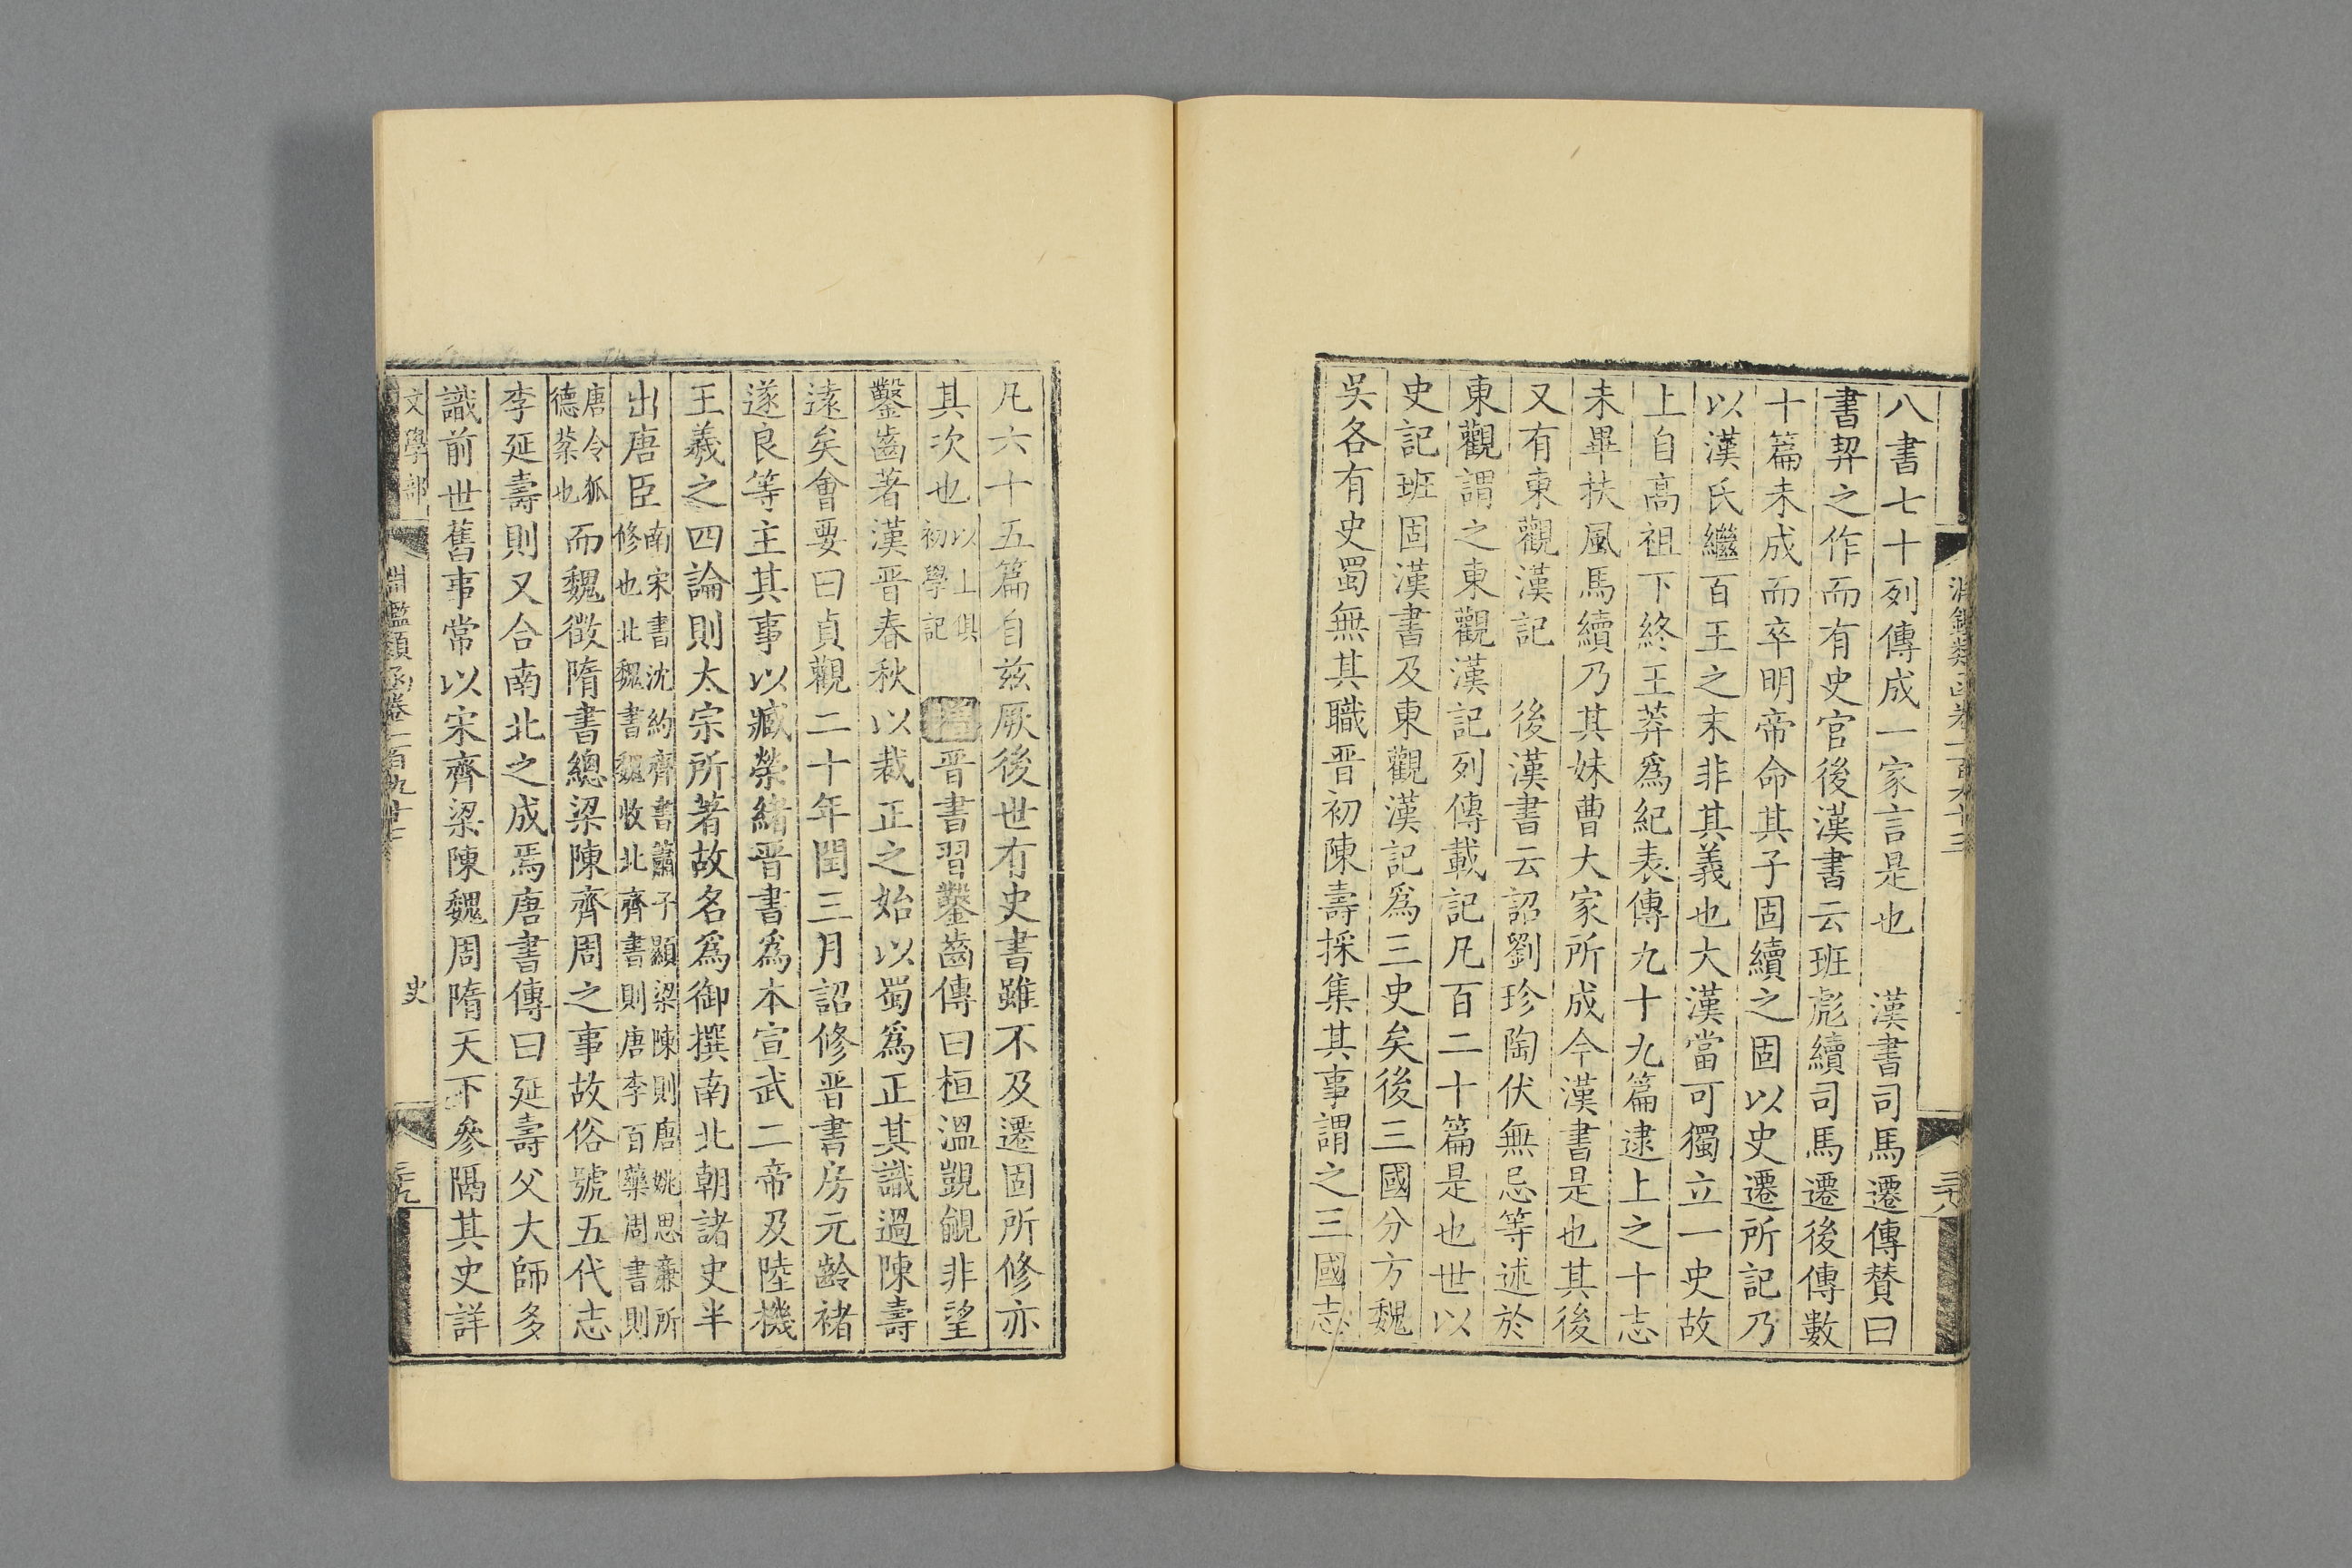 淵鑑類函卷一百九十三
三十八
八書七十列傳成一家言是也　漢書司馬遷傳賛曰
書契之作而有史官後漢書云班彪續司馬遷後傳數
十篇未成而卒明帝命其子固續之固以史遷所記乃
以漢氏繼百王之末非其義也大漢當可獨立一史故
上自高祖下終王莽爲紀表傳九十九篇逮上之十志
未畢扶風馬續乃其妹曹大家所成今漢書是也其後
又有東觀漢記　後漢書云詔劉珍陶伏無忌等述於
東觀謂之東觀漢記列傳載記凡百二十篇是也世以
史記班固漢書及東觀漢記爲三史矣後三國分方魏
吳各有史蜀無其職晋初陳壽採集其事謂之三國志
凡六十五篇自兹厥後世有史書雖不及遷固所修亦
其次也以上俱初學記　晋書習鑿齒傳曰桓溫覬覦非望
鑿齒著漢晋春秋以裁正之始以蜀爲正其識過陳壽
遠矣會要曰貞觀二十年閏三月詔修晋書房元齡褚
遂良等主其事以臧榮緒晋書爲本宣武二帝及陸機
王羲之四論則太宗所著故名爲御撰南北朝諸史半
出唐臣南宋書沈約齊書蕭子顯梁陳則唐姚思廉所修也北魏書魏收北齊書則唐李百藥周書則
唐令狐德棻也而魏徵隋書總梁陳齊周之事故俗號五代志
李延壽則又合南北之成焉唐書傳曰延壽父大師多
識前世舊事常以宋齊梁陳魏周隋天下參隔其史詳
文學部
淵鑑類函卷一百九十三
史
三十九